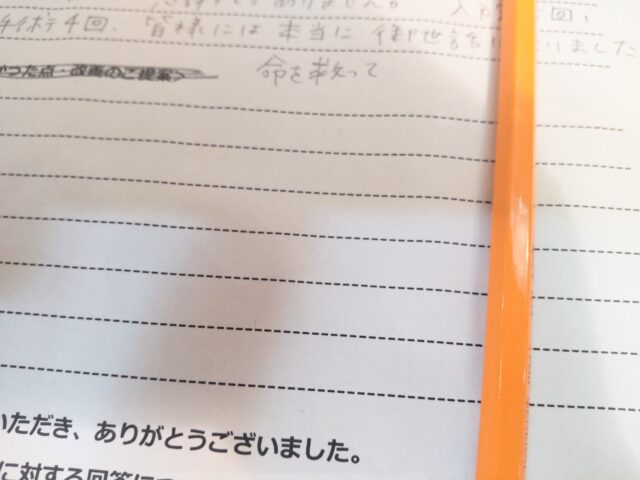 ありません。 入
4回、皆様には本当に御世話 ました
かった点・改善のご提案>
命を救って
いただき、ありがとうございました。
に対する回答に